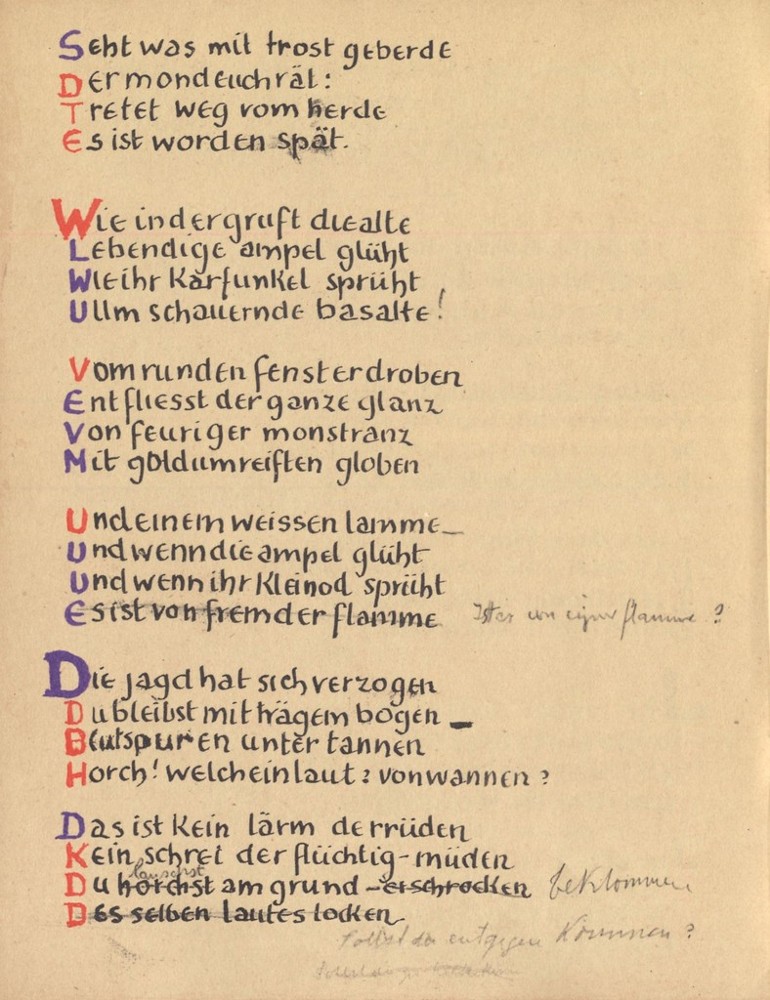 Seht was mit trost geberde
Der mond euch rät:
Tretet weg vom herde
Es ist worden spät.
Wie in der gruft die alte
Lebendige ampel glüht
Wie ihr Karfunkel sprüht
Um schauernde basalte!
Vom runden fenster droben
Entfliesst der ganze glanz
Von feuriger monstranz
Mit goldumreiften globen
Und einem weissen lamme_
Und wenn die ampel glüht
Und wenn ihr Kleinod sprüht
Es ist von fremder flamme Ist es von eigner flamme?
Die jagd hat sich verzogen
Du bleibst mit trägem bogen _
Blutspuren unter tannen
Horch! welch ein laut: von wannen?
Das ist Kein lärm der rüden
Kein schrei der flüchtig-müden
lauschst
Du horchst am grund - erschrocken beklommen
Des selben lautes locken
Sollst du entgegen Kommen?